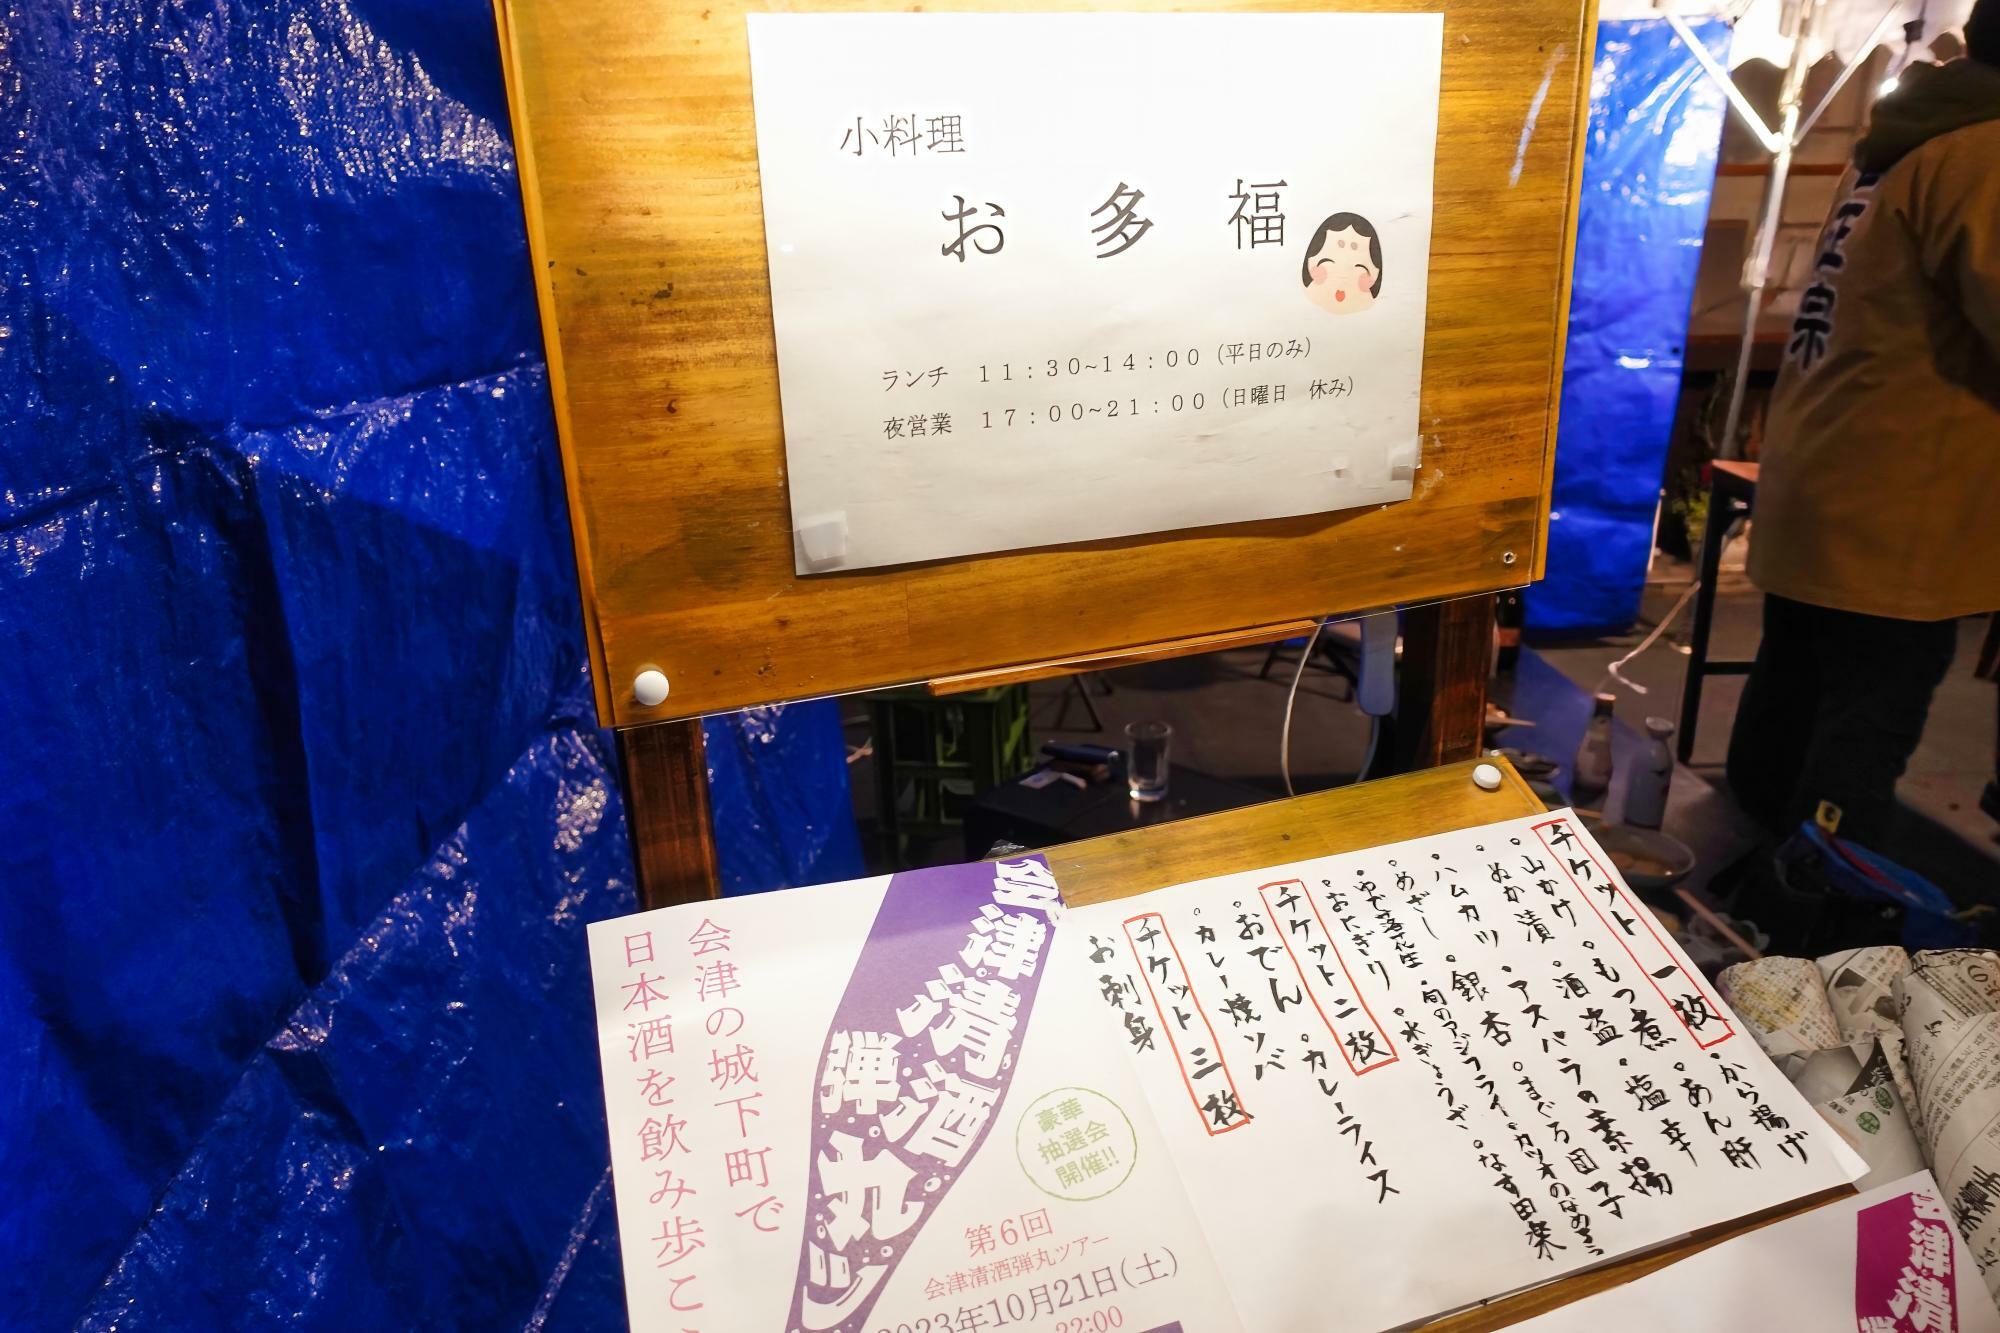 小料理
お多福
ランチ 11:30~14:00(平日のみ)
夜営業 17:00~21:00(日曜日 休み)
チケット一枚
・山かけ ・もつ煮 ・から揚げ
・ぬか漬 ・酒盗 ・塩辛 ・あん肝
・ハムカツ ・アスパラの素揚
・めざし ・銀杏 ・まぐろ団子
・ゆで落花生 ・旬のアジフライ ・カツオのなめろう
・おにぎり ・水ぎょうざ ・なす田楽
チケット二枚
・おでん ・カレーライス
・カレー焼ソバ
チケット三枚
お刺身
会津の城下町で
日本酒を飲み歩こ
会津清酒
弾丸ツ
豪華
抽選会
開催!!
第6回
会津清酒弾丸ツアー
2023年10月21日(土)
22:00
正宗